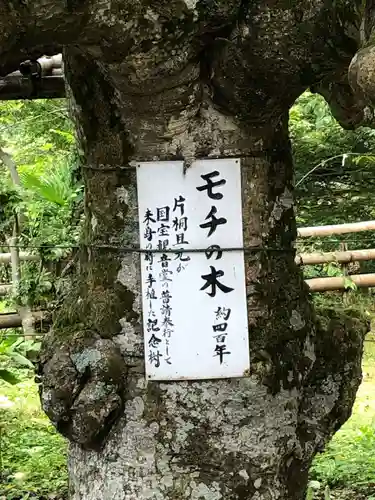 モチの木
約四百年
片桐且元が
国宝観音堂の普請奉行として
来身の時に手植の記念樹